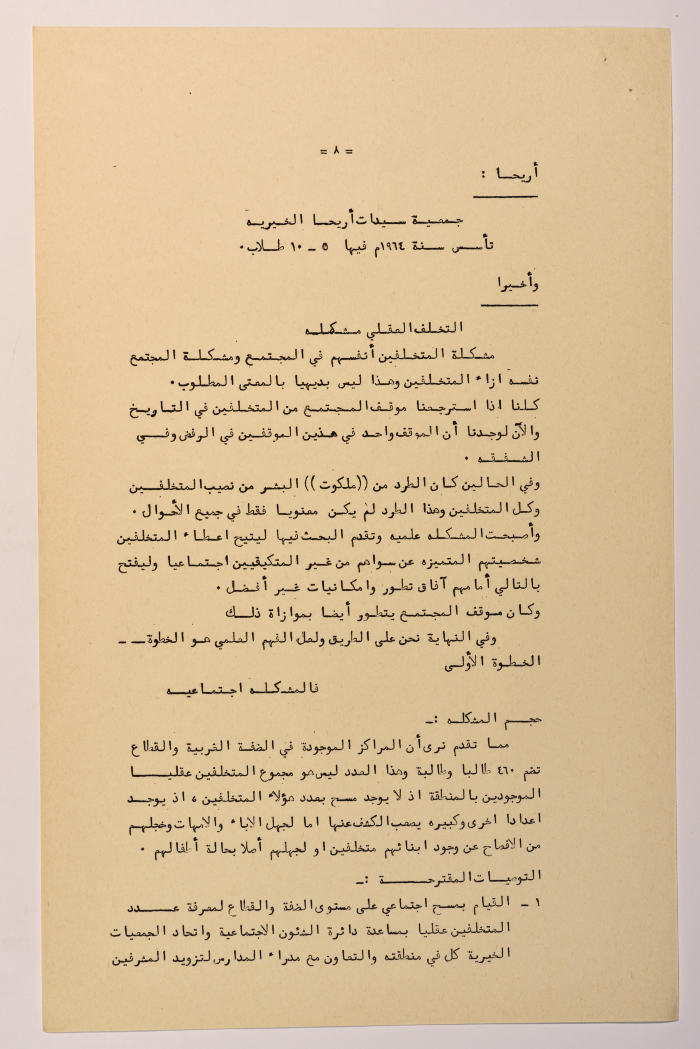 = ٨ =
أريحا :
جمعية سيدات أريحا الخيريه
تأسس سنة ١٩٦٤م فيها ٥ - ١٠ طلاب .
وأخيرا
التخلف العقلي مشكله
مشكلة المتخلفين أنفسهم في المجتمع ومشكلة المجتمع
نفسه ازاء المتخلفين وهذا ليس بديهيا بالمعنى المطلوب .
كلنا اذا استرجعنا موقف المجتمع من المتخلفين في التاريخ
والآن لوجدنا أن الموقف واحد في هذين الموقفين في الرفض وفي
الشفقه .
وفي الحالين كان الطرد من ((ملكوت)) البشر من نصيب المتخلفين
وكل المتخلفين وهذا الطرد لم يكن معنويا فقط في جميع الأحوال .
وأصبحت المشكله علميه وتقدم البحث فيها ليتيح اعطاء المتخلفين
شخصيتهم المتميزه عن سواهم من غير المتكيفيين اجتماعيا وليفتح
بالتالي أمامهم آفاق تطور وامكانيات غير أفضل .
وكان موقف المجتمع يتطور أيضا بموازاة ذلك
وفي النهاية نحن على الطريق ولعل الفهم العلمي هو الخطوة --
الخطوة الأولى
فالمشكله اجتماعيه
حجم المشكله :-
مما تقدم نرى أن المراكز الموجودة في الضفة الغربية والقطاع
تضم ٤٦٠ طالبا وطالبة وهذا العدد ليس هو مجموع المتخلفين عقليا
الموجودين بالمنطقة اذ لا يوجد مسح بعدد هؤلاء المتخلفين ، اذ يوجد
اعدادا اخرى وكبيره يصعب الكشف عنها اما لجهل الاباء والامهات وخجلهم
من الافصاح عن وجود ابنائهم متخلفين او لجهلهم أصلا بحالة أطفالهم .
التوصيات المقترحة :-
١ - القيام بمسح اجتماعي على مستوى الضفة والقطاع لمعرفة عدد
المتخلفين عقليا بمساعدة دائرة الشئون الاجتماعية واتحاد الجمعيات
الخيرية كل في منطقته والتعاون مع مدراء المدارس لتزويد المشرفين